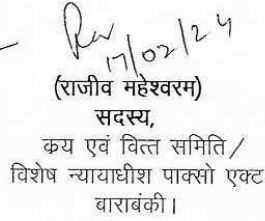 17/02/24
(राजीव महेश्वरम)
सदस्य,
कय एवं वित्त समिति /
विशेष न्यायाधीश पाक्सो एक्ट
बाराबंकी।